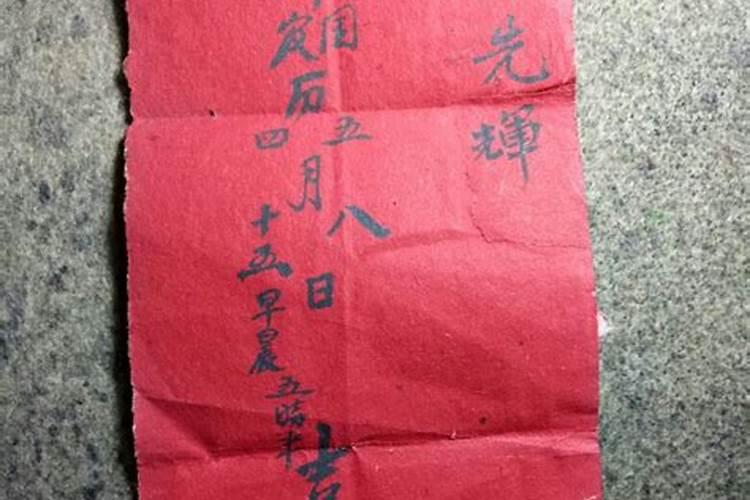 先輝
国 五 八
历月日 吉
农 四 十五早晨五時半